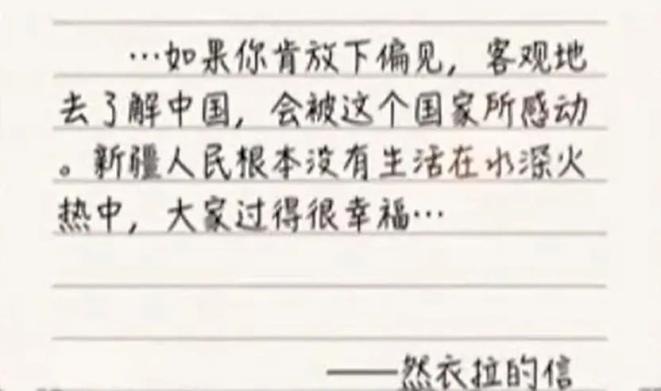 …如果你肯放下偏见，客观地
去了解中国，会被这个国家所感动
。新疆人民根本没有生活在水深火
热中，大家过得很幸福…
——然衣拉的信